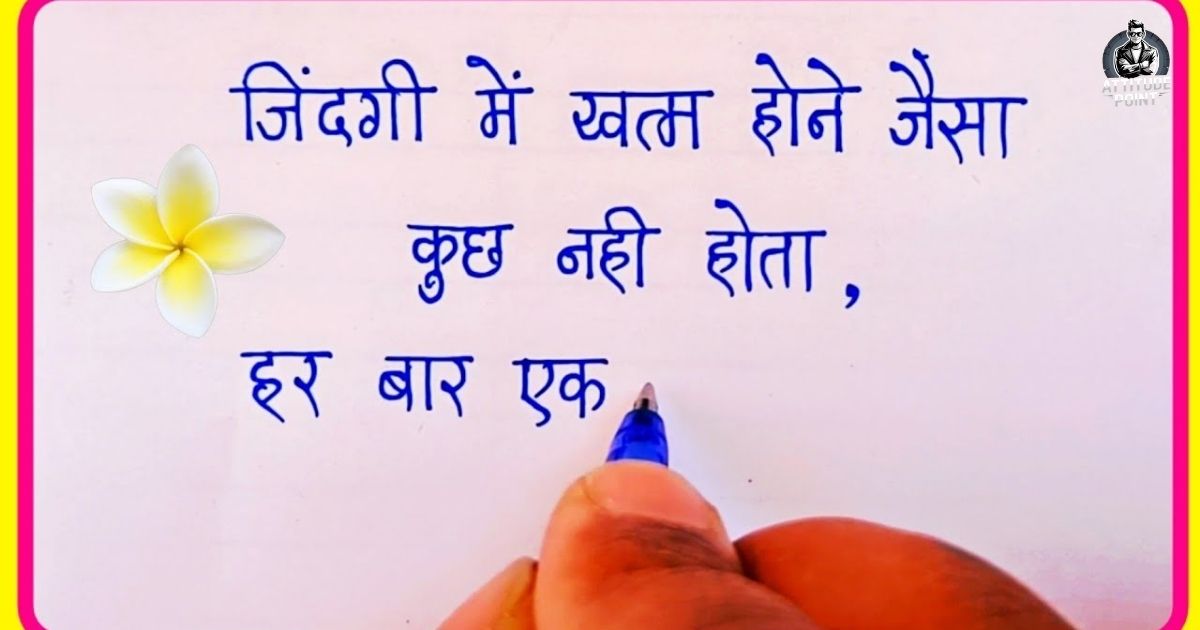 ATTITUDE
POINT
जिंदगी में खत्म होने जैसा
कुछ नही होता,
हर बार एक